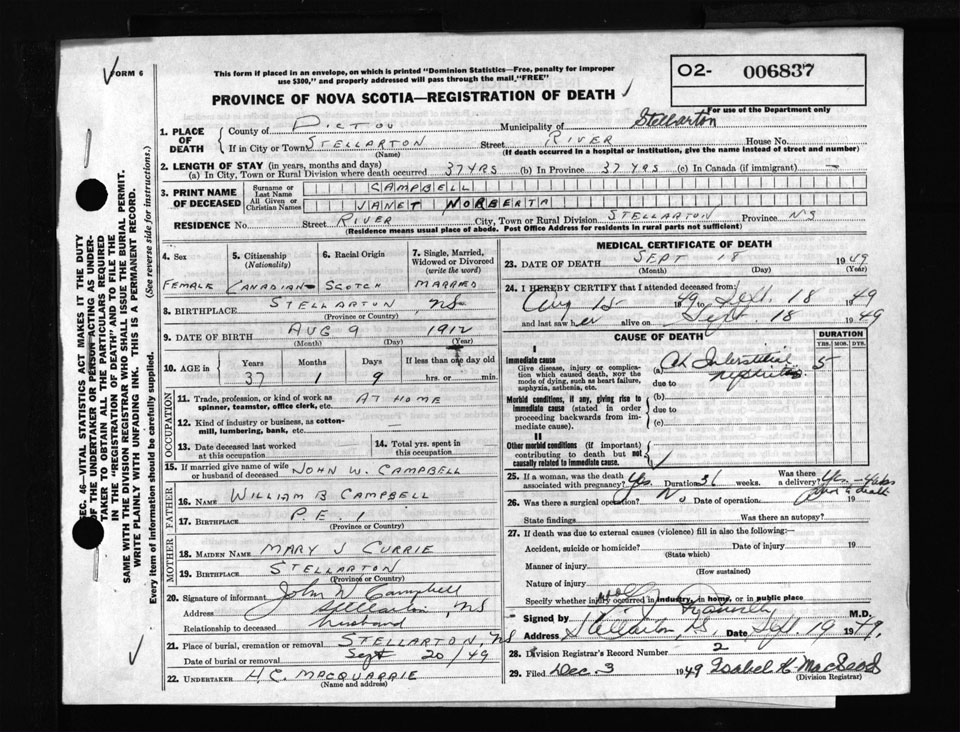 FORM 6
This form if placed in an envelope, on which is printed "Dominion Statistics—Free, penalty for improper
use $300," and properly addressed will pass through the mail, "FREE"
O2- 006837
For use of the Department only
PROVINCE OF NOVA SCOTIA—REGISTRATION OF DEATH
1. PLACE OF DEATH
County of PICTOU Municipality of Stellarton
If in City or Town STELLARTON Street RIVER House No.
(Name) (If death occurred in a hospital or institution, give the name instead of street and number)
2. LENGTH OF STAY (in years, months and days)
(a) In City, Town or Rural Division where death occurred 37 YRS (b) In Province 37 YRS (c) In Canada (if immigrant) —
3. PRINT NAME OF DECEASED
Surname or Last Name CAMPBELL
All Given or Christian Names JANET NORBERTA
RESIDENCE No. Street RIVER City, Town or Rural Division STELLARTON Province NS
(Residence means usual place of abode. Post Office Address for residents in rural parts not sufficient)
4. Sex FEMALE
5. Citizenship (Nationality) CANADIAN
6. Racial Origin SCOTCH
7. Single, Married, Widowed or Divorced (write the word) MARRIED
8. BIRTHPLACE STELLARTON, NS
(Province or Country)
9. DATE OF BIRTH AUG 9 1912
(Month) (Day) (Year)
10. AGE in Years Months Days If less than one day old
37 1 9 hrs. or min.
OCCUPATION
11. Trade, profession or kind of work as spinner, teamster, office clerk, etc. AT HOME
12. Kind of industry or business, as cotton-mill, lumbering, bank, etc. —
13. Date deceased last worked at this occupation
14. Total yrs. spent in this occupation
15. If married give name of wife or husband of deceased JOHN W. CAMPBELL
FATHER
16. NAME WILLIAM B CAMPBELL
17. BIRTHPLACE P.E.
(Province or Country)
MOTHER
18. MAIDEN NAME MARY J CURRIE
19. BIRTHPLACE STELLARTON
(Province or Country)
20. Signature of informant John W Campbell
Address Stellarton, NS
Relationship to deceased husband
21. Place of burial, cremation or removal STELLARTON, NS
Date of burial or removal Sept 20/49
22. UNDERTAKER H.C. MACQUARRIE
(Name and address)
MEDICAL CERTIFICATE OF DEATH
23. DATE OF DEATH SEPT 18 1949
(Month) (Day) (Year)
24. I HEREBY CERTIFY that I attended deceased from:
Aug 15 1949 to Sept. 18 1949
and last saw her alive on Sept. 18 1949
CAUSE OF DEATH DURATION
YRS. MOS. DYS.
I
Immediate cause
Give disease, injury or complication which caused death, nor the mode of dying, such as heart failure, asphyxia, asthenia, etc.
(a) Ch Interstitial nephritis 5
due to
Morbid conditions, if any, giving rise to immediate cause (stated in order proceeding backwards from immediate cause).
(b)
due to
(c)
II
Other morbid conditions (if important) contributing to death but not causally related to immediate cause.
25. If a woman, was the death associated with pregnancy? Yes. Duration weeks. Was there a delivery? Yes
26. Was there a surgical operation? No Date of operation 19
State findings Was there an autopsy?
27. If death was due to external causes (violence) fill in also the following:—
Accident, suicide or homicide? Date of injury 19
(State which)
Manner of injury
(How sustained)
Nature of injury
Specify whether injury occurred in industry, in home, or in public place
Signed by M.D.
Address Stellarton, NS. Date Sept 19 1949.
28. Division Registrar's Record Number 2
29. Filed Dec. 3 1949 Isabel K. MacLeod
(Division Registrar)
SEC. 46—VITAL STATISTICS ACT MAKES IT THE DUTY
OF THE UNDERTAKER OR PERSON ACTING AS UNDER-
TAKER TO OBTAIN ALL THE PARTICULARS REQUIRED
IN THE "REGISTRATION OF DEATH" AND TO FILE THE
SAME WITH THE DIVISION REGISTRAR WHO SHALL ISSUE THE BURIAL PERMIT.
WRITE PLAINLY WITH UNFADING INK. THIS IS A PERMANENT RECORD.
Every item of information should be carefully supplied. (See reverse side for instructions.)